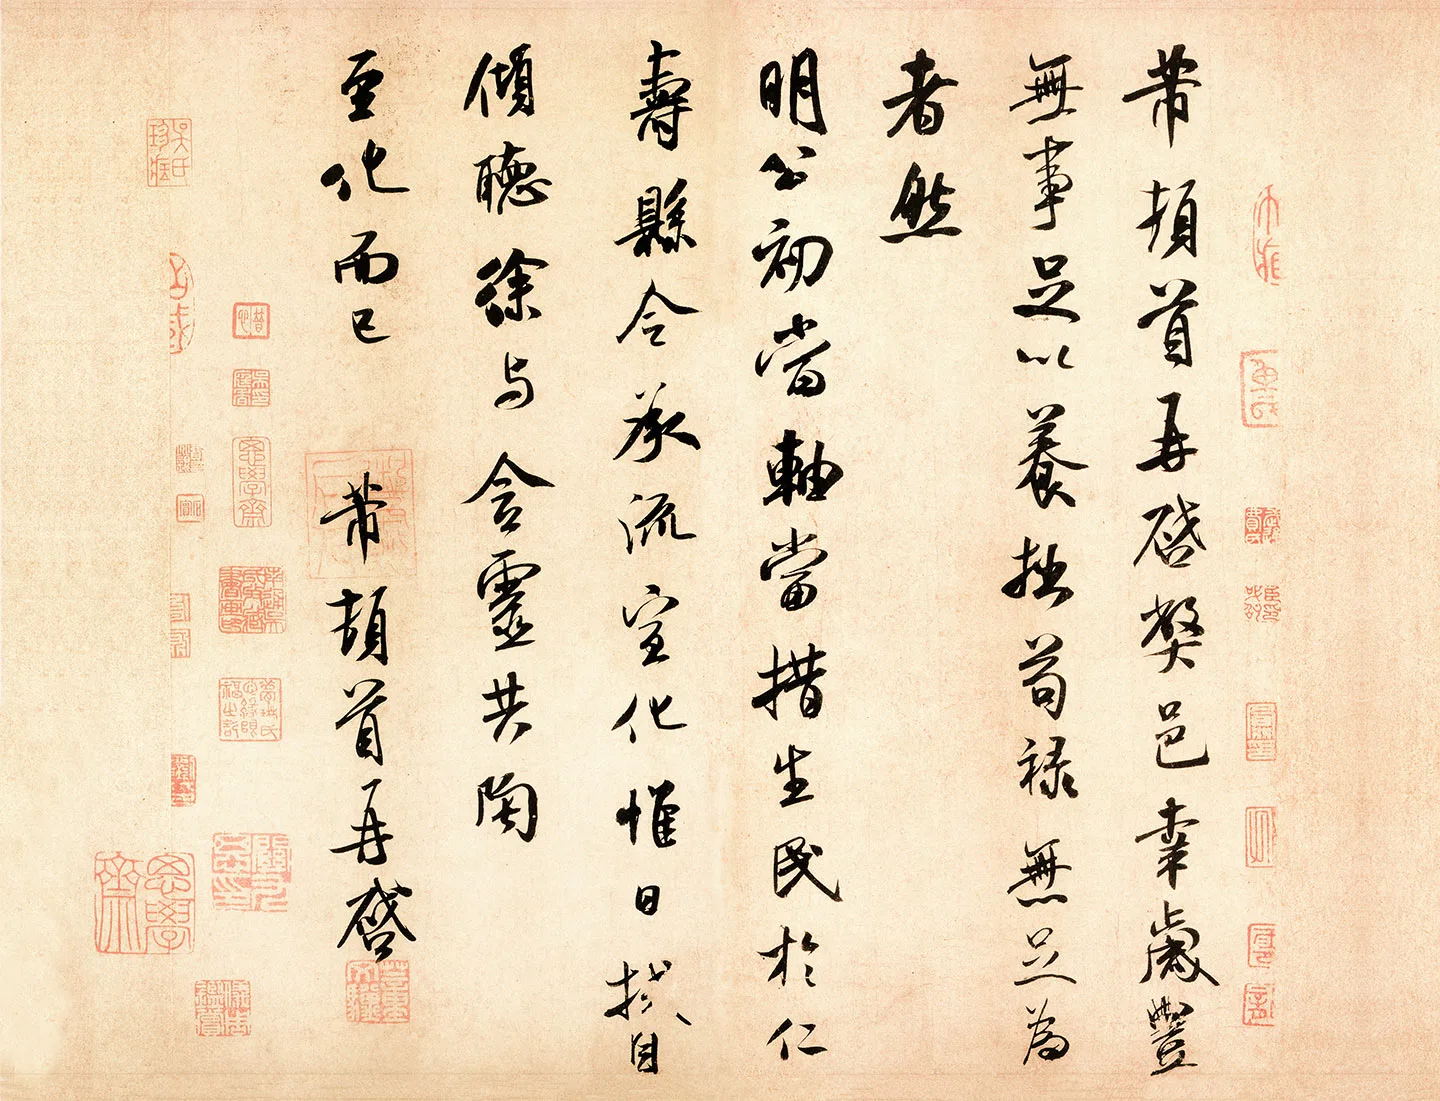 芾頓首再啓獘邑幸歲豐
無事足以養拙苟祿無足為
者然
明公初當軸當措生民於仁
壽縣令承流宣化惟日拭目
傾聽徐与含靈共陶
至化而已 芾頓首再啓
思學齋
思學齋